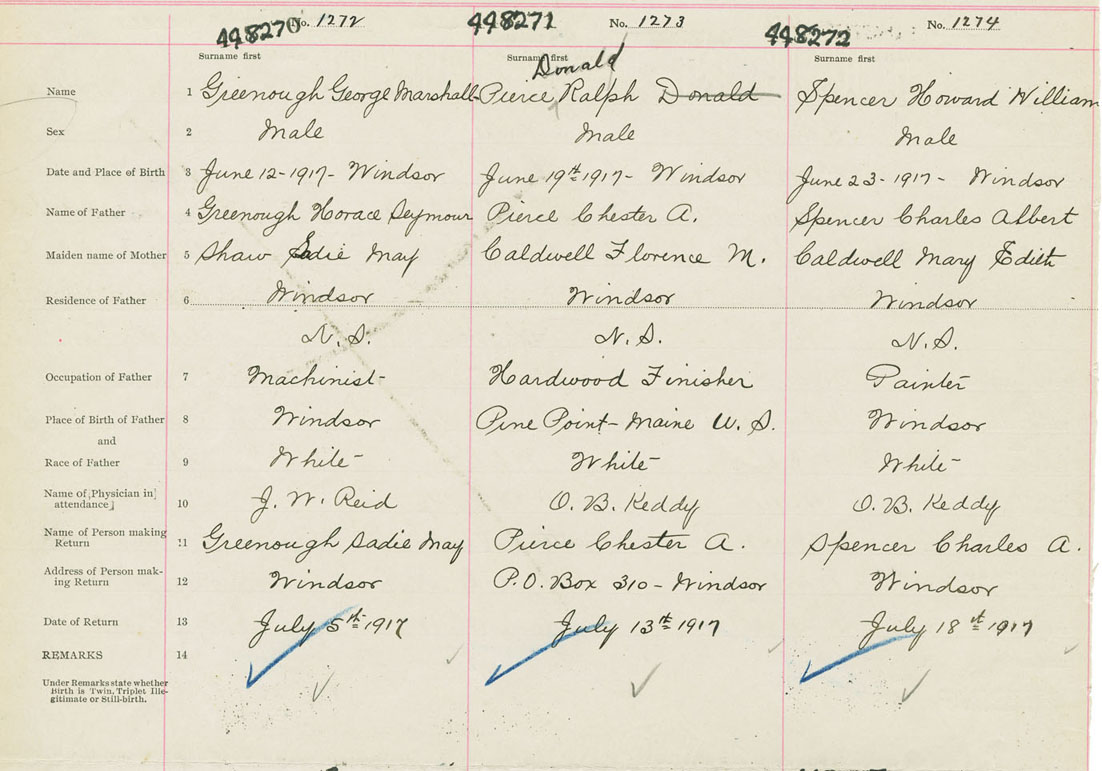 448270 No. 1272 448271 No. 1273 448272 No. 1274
Surname first Surname first Surname first
Donald
Name 1 Greenough George Marshall Pierce Ralph Donald Spencer Howard William
Sex 2 Male Male Male
Date and Place of Birth 3 June 12-1917- Windsor June 19th 1917- Windsor June 23-1917- Windsor
Name of Father 4 Greenough Horace Seymour Pierce Chester A. Spencer Charles Albert
Maiden name of Mother 5 Shaw Sadie May Caldwell Florence M. Caldwell Mary Edith
Residence of Father 6 Windsor Windsor Windsor
N.S. N.S. N.S.
Occupation of Father 7 Machinist Hardwood Finisher Painter
Place of Birth of Father 8 Windsor Pine Point- Maine U.S. Windsor
and
Race of Father 9 White White White
Name of [Physician in]
attendance] 10 J. W. Reid O. B. Keddy O. B. Keddy
Name of Person making
Return 11 Greenough Sadie May Pierce Chester A. Spencer Charles A.
Address of Person mak-
ing Return 12 Windsor P.O. Box 310- Windsor Windsor
Date of Return 13 July 5th 1917 July 13th 1917 July 18th 1917
REMARKS 14
Under Remarks state whether
Birth is Twin, Triplet Ille-
gitimate or Still-birth.